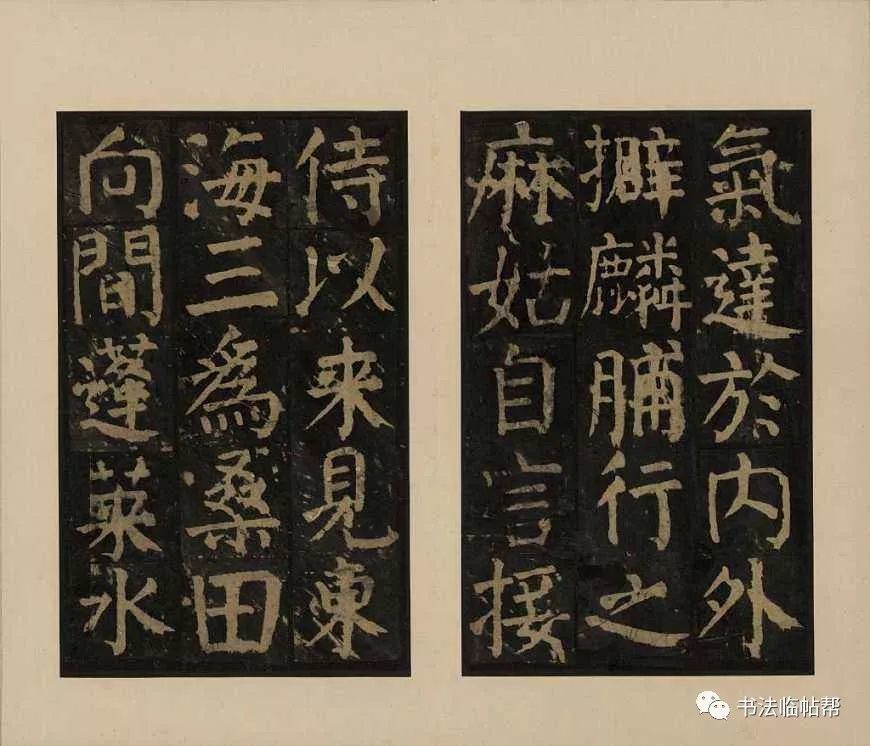 氣達於内外
擗麟脯行之
麻姑自言接
侍以来見東
海三爲桑田
向間蓬萊水
书法临帖帮